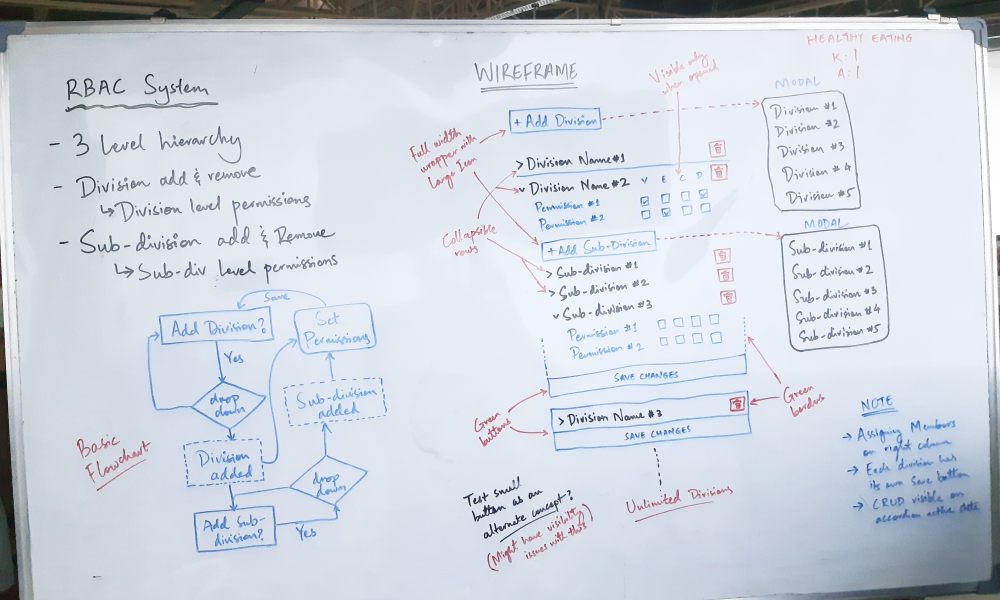 RBAC System
- 3 Level hierarchy
- Division add & remove
↳ Division level permissions
- Sub-division add & Remove
↳ Sub-div level permissions
Save
Add Division?
Set
Permissions
Yes
drop
down
Sub-division
added
Basic
Flowchart
Division
added
drop
down
Add Sub-
division?
Yes
WIREFRAME
Visible only
when opened
HEALTHY EATING
K: |
A: |
+ Add Division
MODAL
Division #1
Division #2
Division #3
Division #4
Division #5
Full width
wrapper with
Large Icon
> Division Name #1
v Division Name #2
V E C D
Permission #1
Permission #2
Collapsible
rows
+ Add Sub-Division
MODAL
Sub-division #1
Sub-division #2
Sub-division #3
Sub-division #4
Sub-division #5
> Sub-division #1
> Sub-division #2
v Sub-division #3
Permission #1
Permission #2
SAVE CHANGES
Green
buttons
Green
borders
> Division Name #3
SAVE CHANGES
Test small
button as an
alternate concept?
(Might have visibility
issues with this)
Unlimited Divisions
NOTE
→ Assigning Members
on right column
→ Each division has
its own save button
→ CRUD visible on
accordion active state